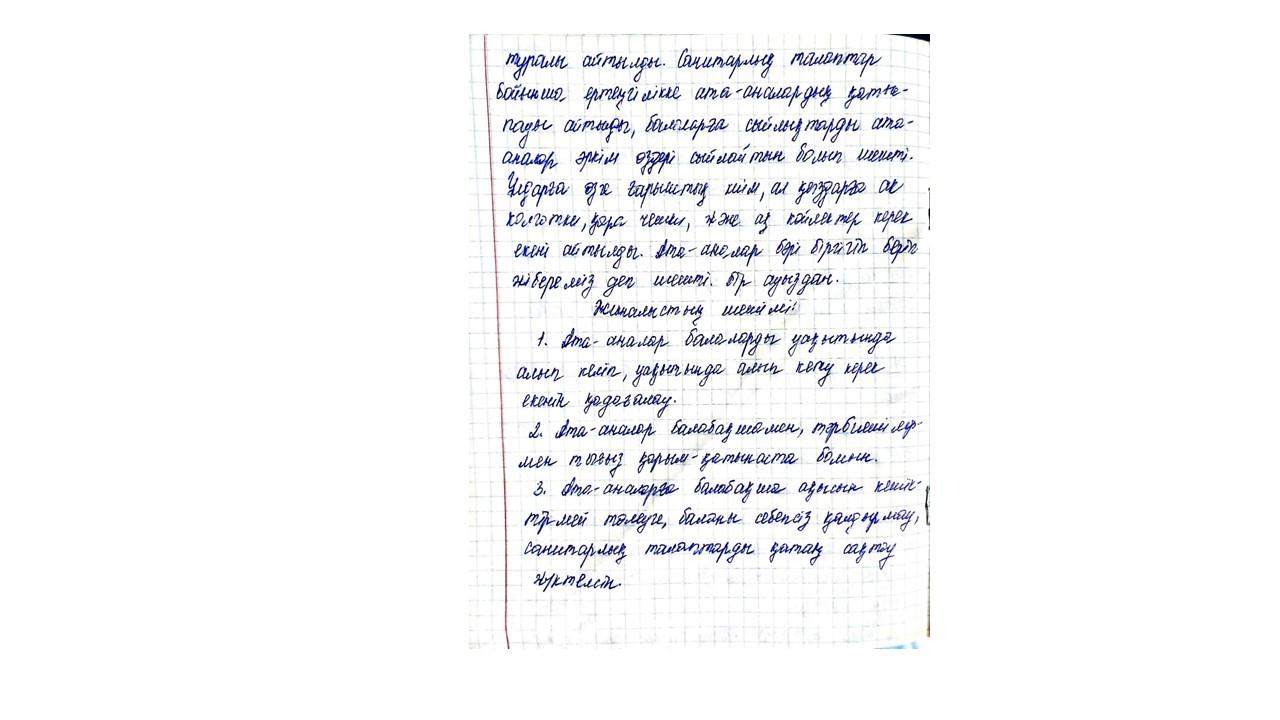 туралы айтылды. Санитарлық талаптар
бойынша, ертеңгілікке ата-аналардың қатыс-
пады айтылды, балаларға сыйлықтарды ата-
аналар әркім өздері сыйлайтын болып шешті.
Ұлдарға өзге ғарыштық киім, ал қыздарға ақ
колготки, қара чешки, және ақ көйлектер керек
екені айтылды. Ата-аналар бәрі бірігіп беріп
жібереміз деп шешті. бір ауыздан.
Жиналыстың шешімі:
1. Ата-аналар балаларды уақытында
алып келіп, уақытында алып кету керек
екенін қадағалау.
2. Ата-аналар балабақшамен, тәрбиешілер-
мен тығыз қарым-қатынаста болсын.
3. Ата-аналарға балабақша ақысын кешік-
тірмей төлеуге, баланы себепсіз қалдырмау,
санитарлық талаптарды қатаң сақтау
жүктелсін.